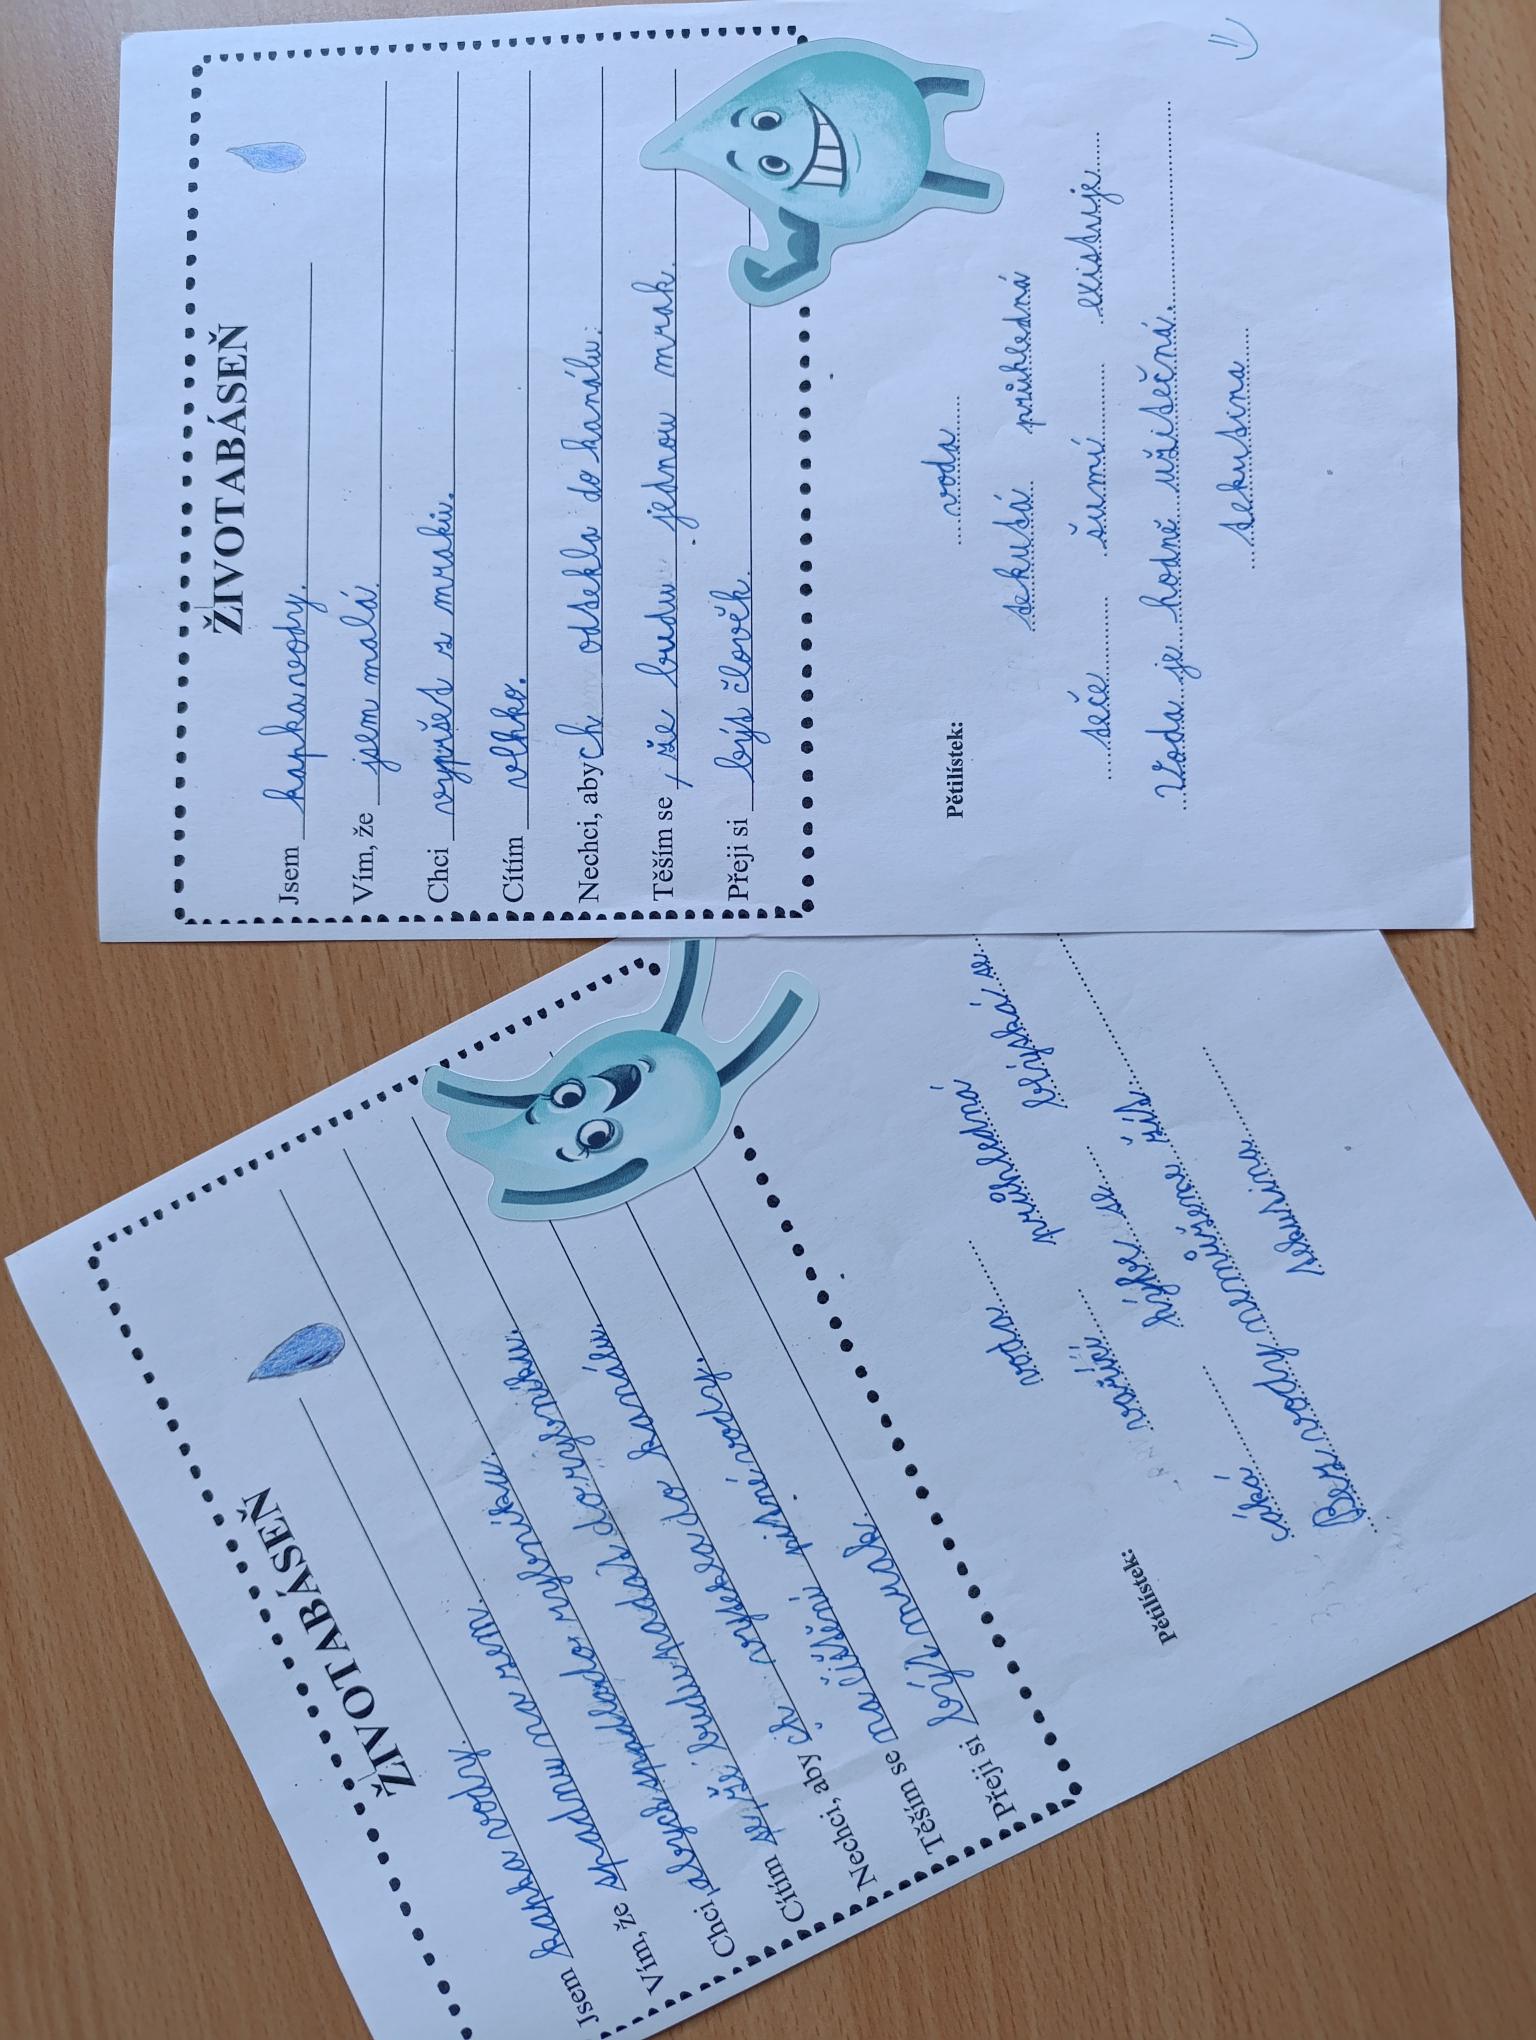 ŽIVOTABÁSEŇ
Jsem kapka vody.
Vím, že jsem malá.
Chci vypršet z mraků.
Cítím vlhko.
Nechci, abych odtekla do kanálu.
Těším se, že budu jednou mrak.
Přeji si být člověk.
Pětilístek:
voda
tekutá průhledná
teče šumí existuje
Voda je hodně užitečná.
tekutina
ŽIVOTABÁSEŇ
Jsem kapka vody.
Vím, že spadnu na zem.
Chci abych spadla do rybníku.
Cítím se, že budu padat do rybníku.
Nechci, abych vytekla do kanálu.
Těším se na čištění pitné vody.
Přeji si být mrak.
Pětilístek:
voda
průhledná
vařící se
blýská se
hýbe se
Bez vody nemůžeme žít.
tekutina